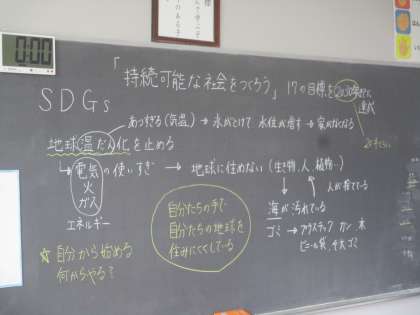 0:00
「持続可能な社会をつくろう」 17の目標を2030年までに
達成
SDGs
あつすぎる(気温) → 氷がとけて 水位が増す → 家がなくなる
地球温だん化を止める
電気の使いすぎ → 地球に住めない(生き物、人、植物…)
火
ガス
エネルギー
人が捨てている
海が汚れている
ゴミ → プラスチック カン 木
ビニール袋、
自分たちの手で
自分たちの地球を
住みにくくしている
☆自分から始める
何からやる?